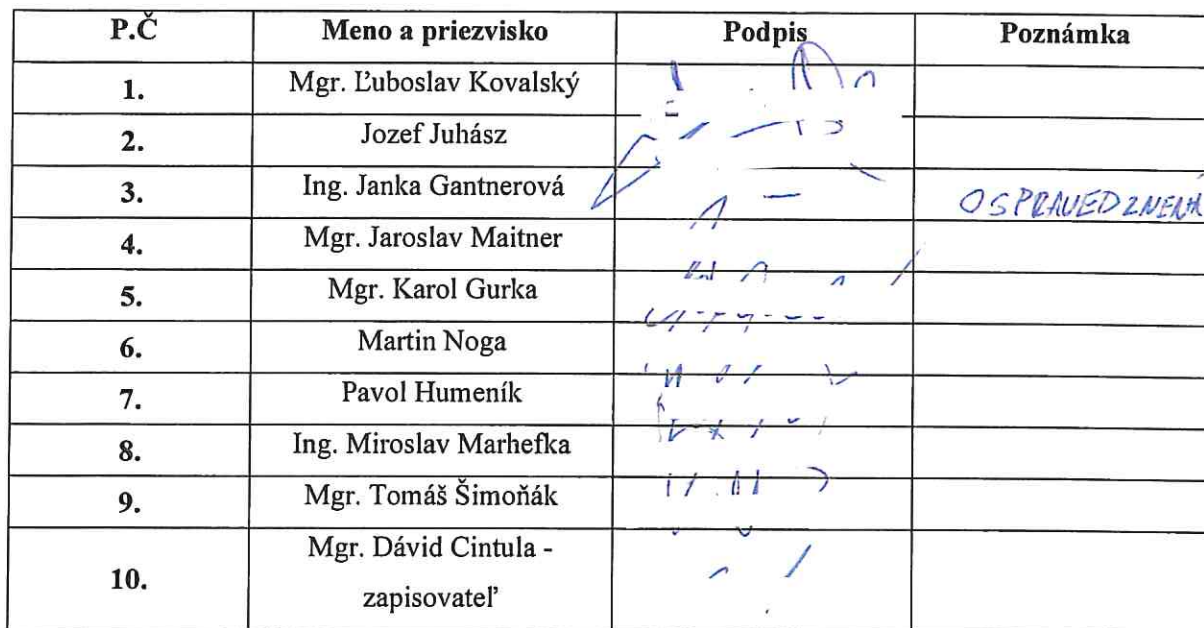 P.Č Meno a priezvisko Podpis Poznámka
1. Mgr. Ľuboslav Kovalský
2. Jozef Juhász
3. Ing. Janka Gantnerová OSPRAVEDLNENÁ
4. Mgr. Jaroslav Maitner
5. Mgr. Karol Gurka
6. Martin Noga
7. Pavol Humeník
8. Ing. Miroslav Marhefka
9. Mgr. Tomáš Šimoňák
10. Mgr. Dávid Cintula -
zapisovateľ